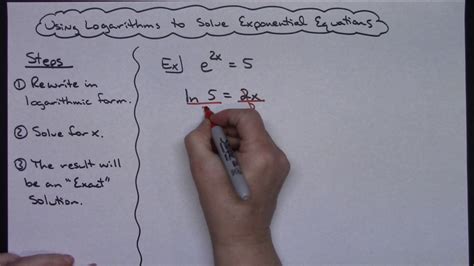 Using Logarithms to Solve Exponential Equations
Steps
① Rewrite in
logarithmic form.
② Solve for x.
③ The result will
be an "Exact"
Solution.
Ex] e^2x = 5
ln 5 = 2x
2